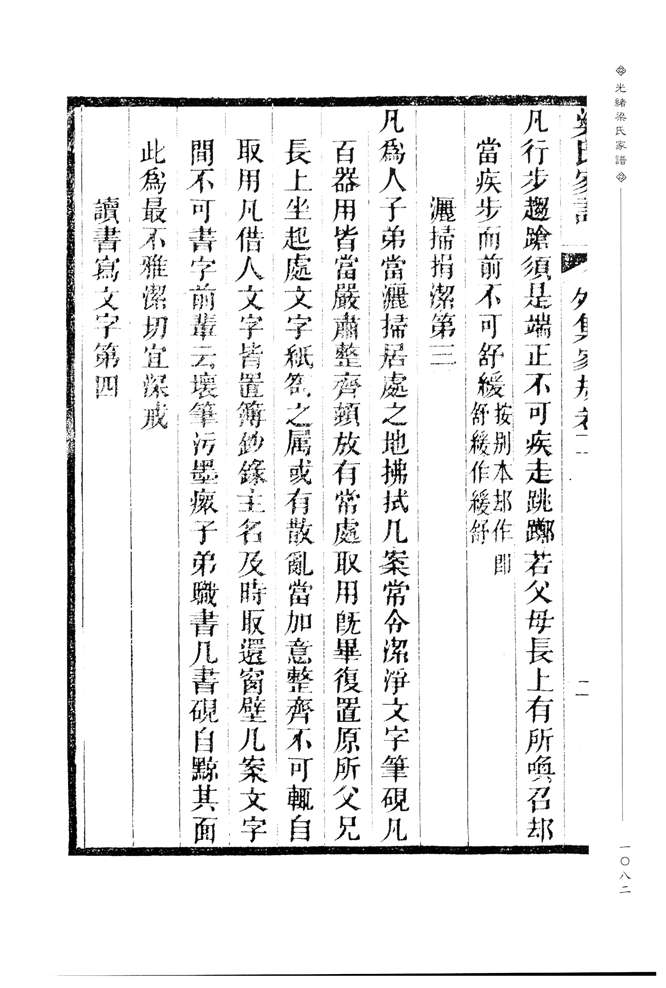 光緒梁氏家譜
一〇八二
梁氏家譜 外集家規卷二 二
凡行步趨蹌須是端正不可疾走跳躑若父母長上有所喚召却
當疾步而前不可舒緩按别本却作卽舒緩作緩舒
灑掃捐潔第三
凡為人子弟當灑掃居處之地拂拭几案常令潔淨文字筆硯凡
百器用皆當嚴肅整齊頓放有常處取用旣畢復置原所父兄
長上坐起處文字紙劄之属或有散亂當加意整齊不可輒自
取用凡借人文字皆置簿鈔錄主名及時取還窗壁几案文字
間不可書字前輩云壞筆污墨瘝子弟職書几書硯自黥其面
此為最不雅潔切宜深戒
讀書寫文字第四